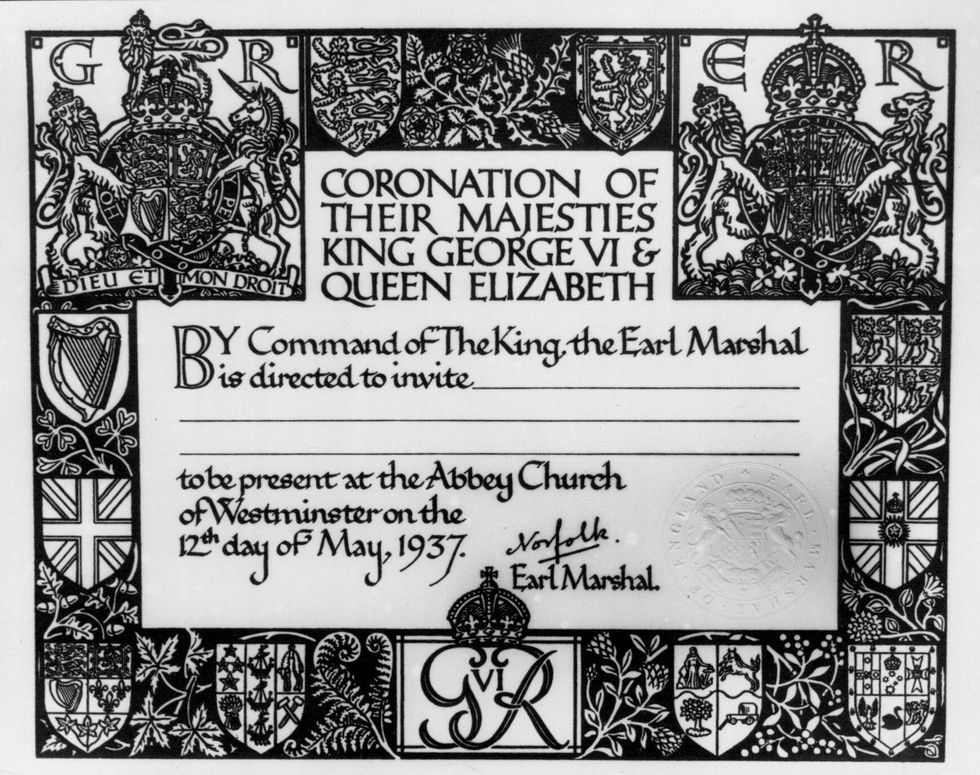 G R
E R
DIEU ET MON DROIT
CORONATION OF
THEIR MAJESTIES
KING GEORGE VI &
QUEEN ELIZABETH
BY Command of The King, the Earl Marshal
is directed to invite
to be present at the Abbey Church
of Westminster on the
12th day of May, 1937.
Norfolk.
Earl Marshal.
EARL · MARSHAL · OF · ENGLAND
G VI R